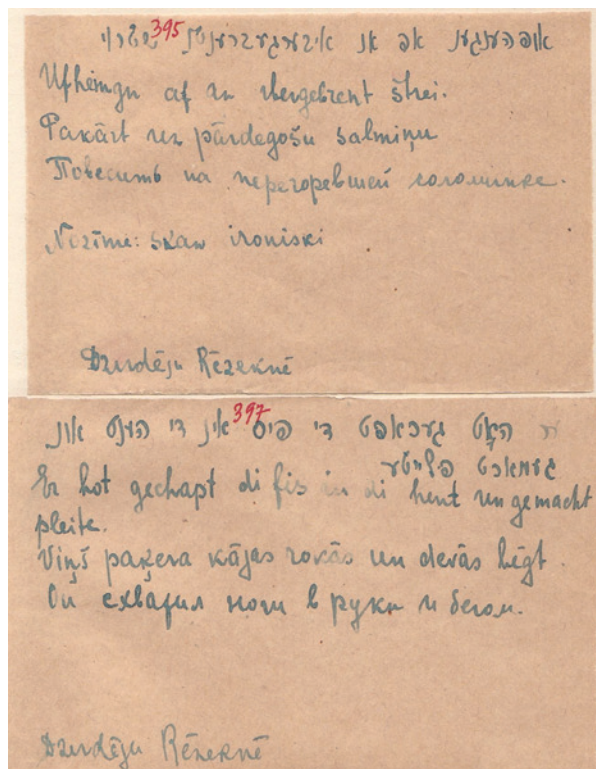 395
אופהענגען אפ אן איבערגעברענטן שטרוי
Ufhengn af an ibergebrent štrei.
Pakārt uz pārdegošu salmiņu
Повесить на перегоревшей соломинке.
Nozīme: skan ironiski
Dzirdēju Rēzeknē
397
ער האָט געכאפט די פיס אין די הענט און
געמאכט פלייטע
Er hot gechapt di fis in di hent un gemacht
pleite.
Viņš paķera kājas rokās un devās bēgt.
Он схватил ноги в руки и бегом.
Dzirdēju Rēzeknē